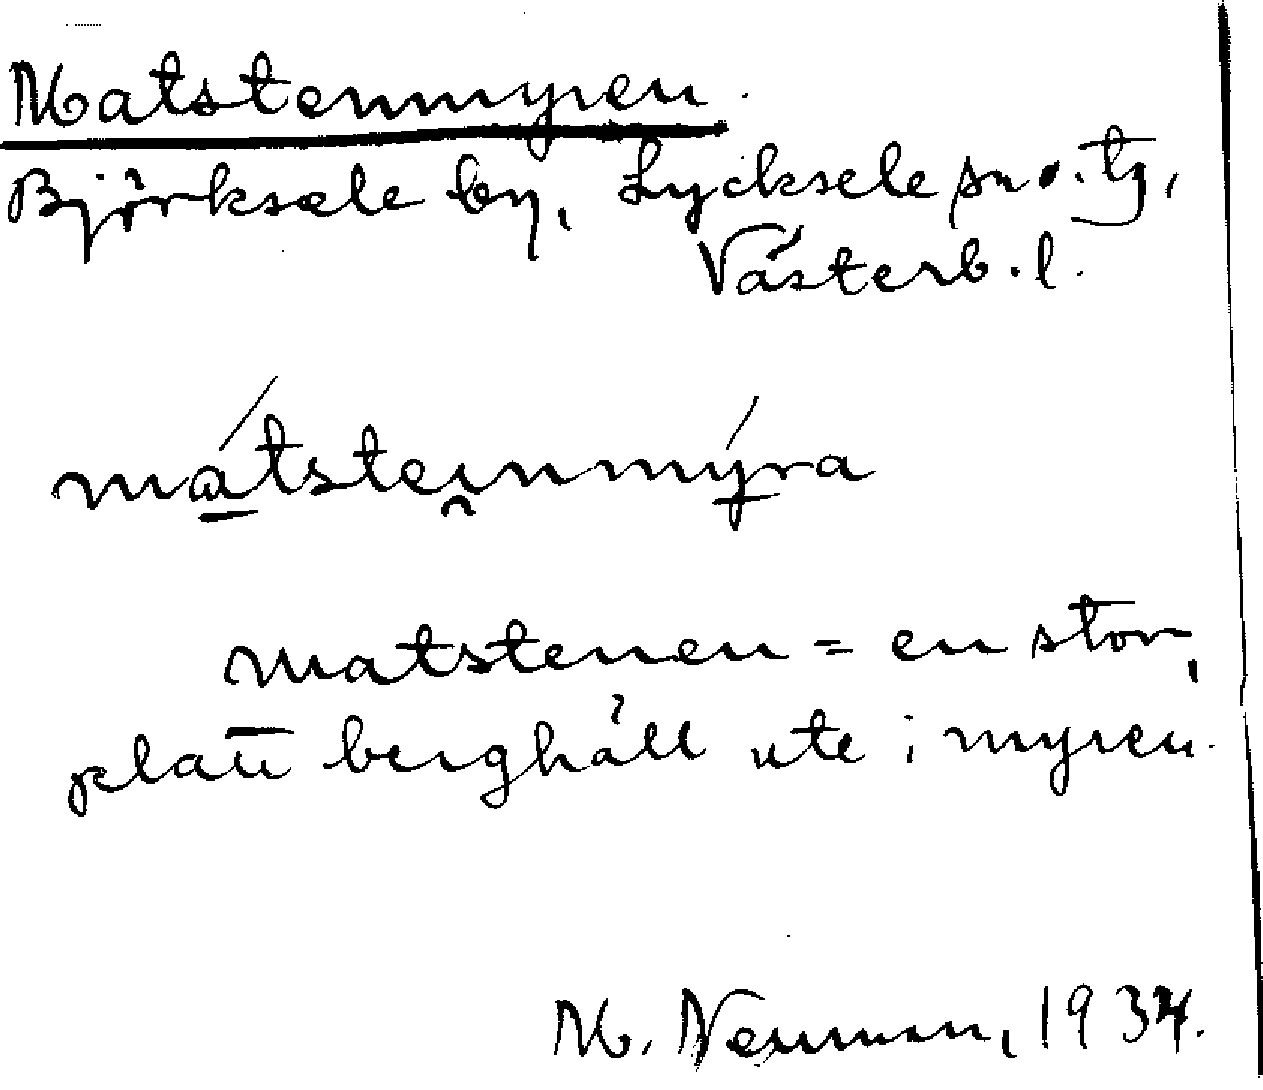 Matstenmyren.
Björksele by, Lycksele sn o. tg,
Västerb. l.
mátsteinmýra
matstenen = en stor,
platt berghäll ute i myren.
M. Neuman, 1934.